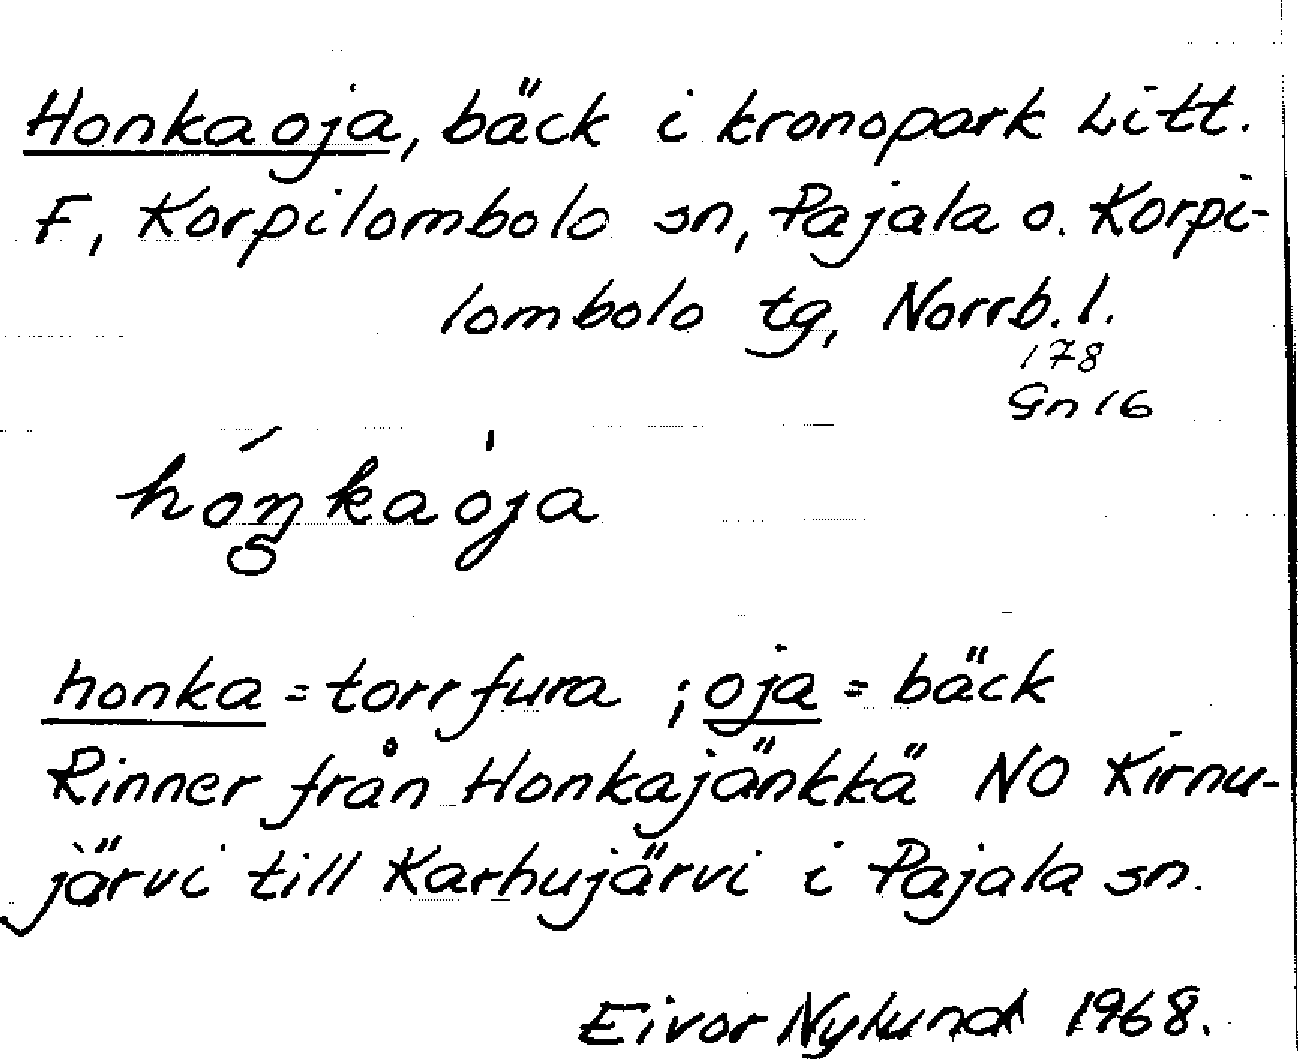 Honkaoja, bäck i kronopark Litt.
F, Korpilombolo sn, Pajala o. Korpi-
lombolo tg, Norrb. l.
178
Gn 16
hoŋkaoja
honka = torrfura ; oja = bäck
Rinner från Honkajänkkä NO Kirnu-
järvi till Karhujärvi i Pajala sn.
Eivor Nylund 1968.